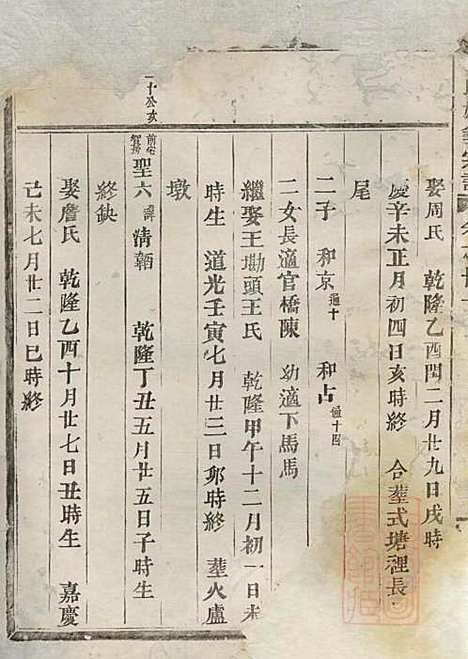 娶周氏 乾隆乙酉閏二月廿九日戌時
慶辛未正月初四日亥時終 合葬式塘裡長
尾
二子 和京通十 和占通十四
二女長適官橋陳 幼適下馬馬
繼娶王墈頭王氏 乾隆甲午十二月初一日未
時生 道光壬寅七月廿三日卯時終 葬火盧
墩
聖六 諱清韜 乾隆丁丑五月廿五日子時生
終缺
娶詹氏 乾隆乙酉十月廿七日丑時生 嘉慶
己未七月廿二日巳時終